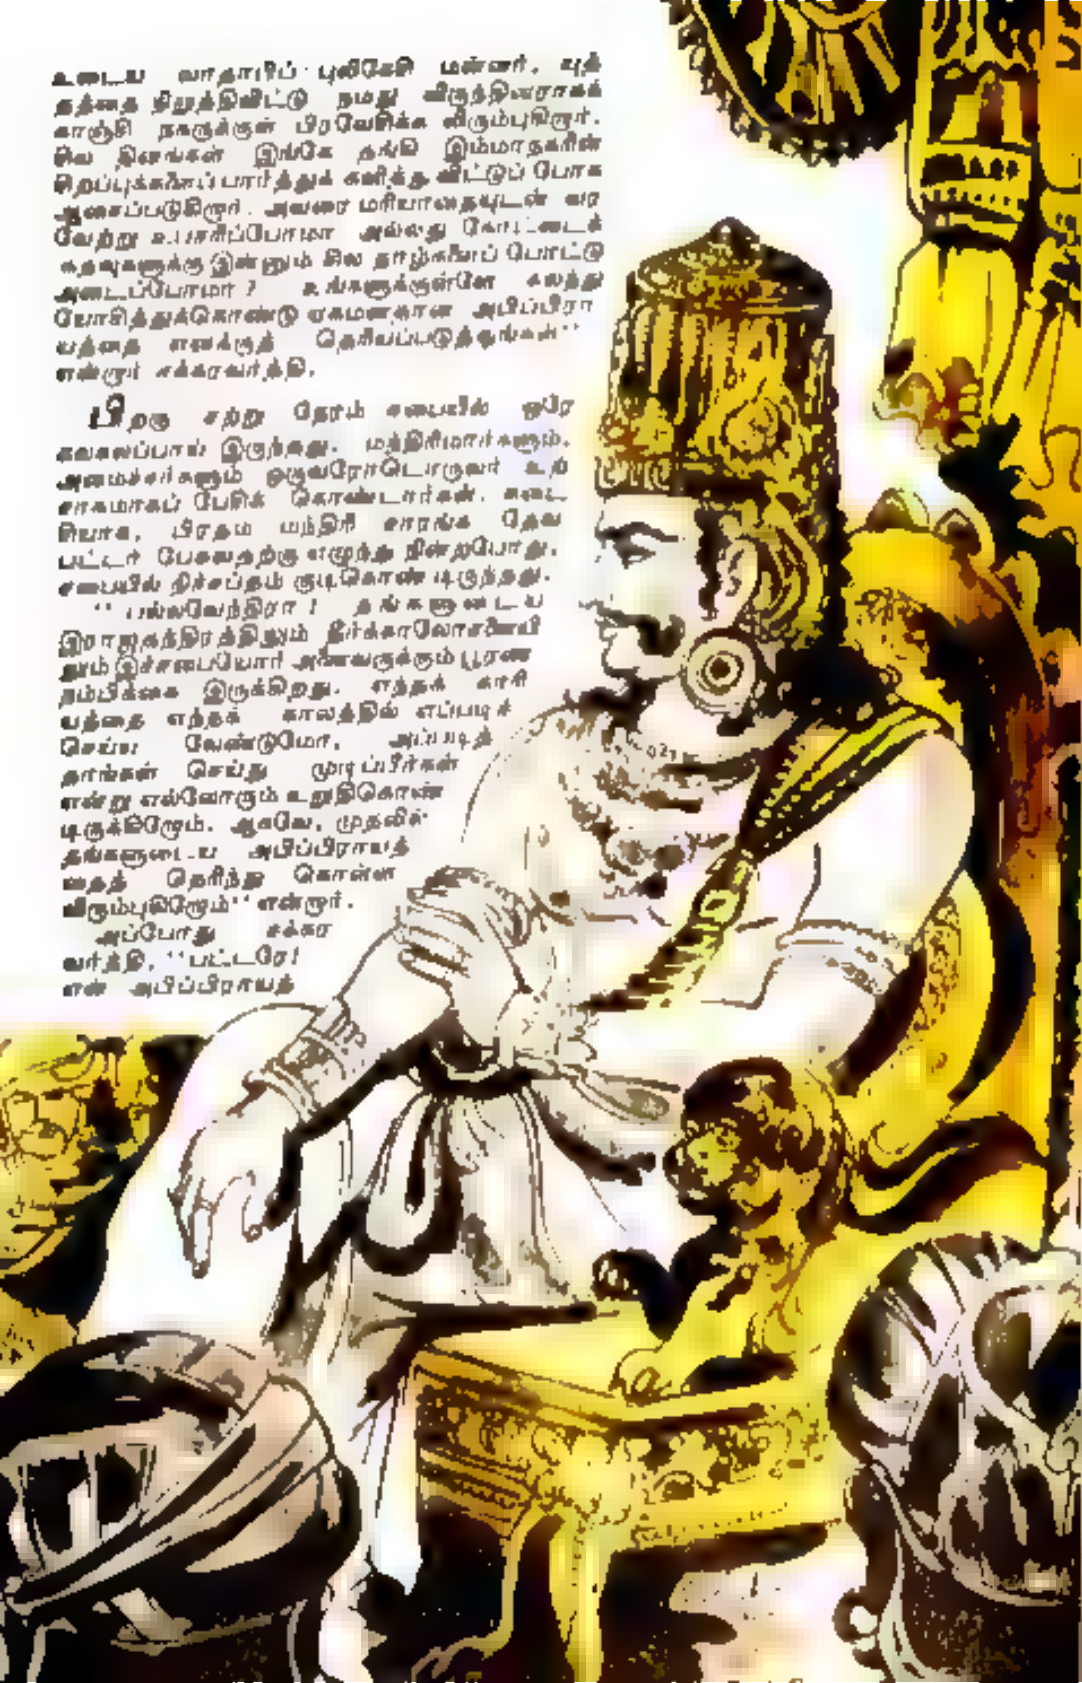 உடைய வாதாபிப் புலிகேசி மன்னர், யுத்
தத்தை நிறுத்திவிட்டு நமது விருந்தினராகக்
காஞ்சி நகருக்குள் பிரவேசிக்க விரும்புகிறார்.
சில தினங்கள் இங்கே தங்கி இம்மாநகரின்
சிறப்புக்களைப் பார்த்துக் களித்து விட்டுப் போக
ஆசைப்படுகிறார். அவரை மரியாதையுடன் வர
வேற்று உபசரிப்போமா அல்லது கோட்டைக்
கதவுகளுக்கு இன்னும் சில தாழ்களைப் போட்டு
அடைப்போமா? உங்களுக்குள்ளே கலந்து
யோசித்துக்கொண்டு ஏகமனதான அபிப்பிரா
யத்தை எனக்குத் தெரியப்படுத்துங்கள்''
என்றார் சக்கரவர்த்தி.
பிறகு சற்று நேரம் சபையில் ஒரே
கலகலப்பாய் இருந்தது. மந்திரிமார்களும்,
அமைச்சர்களும் ஒருவரோடொருவர் உற்
சாகமாகப் பேசிக் கொண்டார்கள். கடை
சியாக, பிரதம மந்திரி சாரங்க தேவ
பட்டர் பேசுவதற்கு எழுந்து நின்றபோது,
சபையில் நிச்சப்தம் குடிகொண்டிருந்தது.
''பல்லவேந்திரா! தங்களுடைய
இராஜதந்திரத்திலும் தீர்க்காலோசனையி
லும் இச்சபையோர் அனைவருக்கும் பூரண
நம்பிக்கை இருக்கிறது. எந்தக் காரி
யத்தை எந்தக் காலத்தில் எப்படிச்
செய்ய வேண்டுமோ, அப்படித்
தாங்கள் செய்து முடிப்பீர்கள்
என்று எல்லோரும் உறுதிகொண்
டிருக்கிறோம். ஆகவே, முதலில்
தங்களுடைய அபிப்பிராயத்
தைத் தெரிந்து கொள்ள
விரும்புகிறோம்'' என்றார்.
அப்போது சக்கர
வர்த்தி, ''பட்டரே!
என் அபிப்பிராயத்